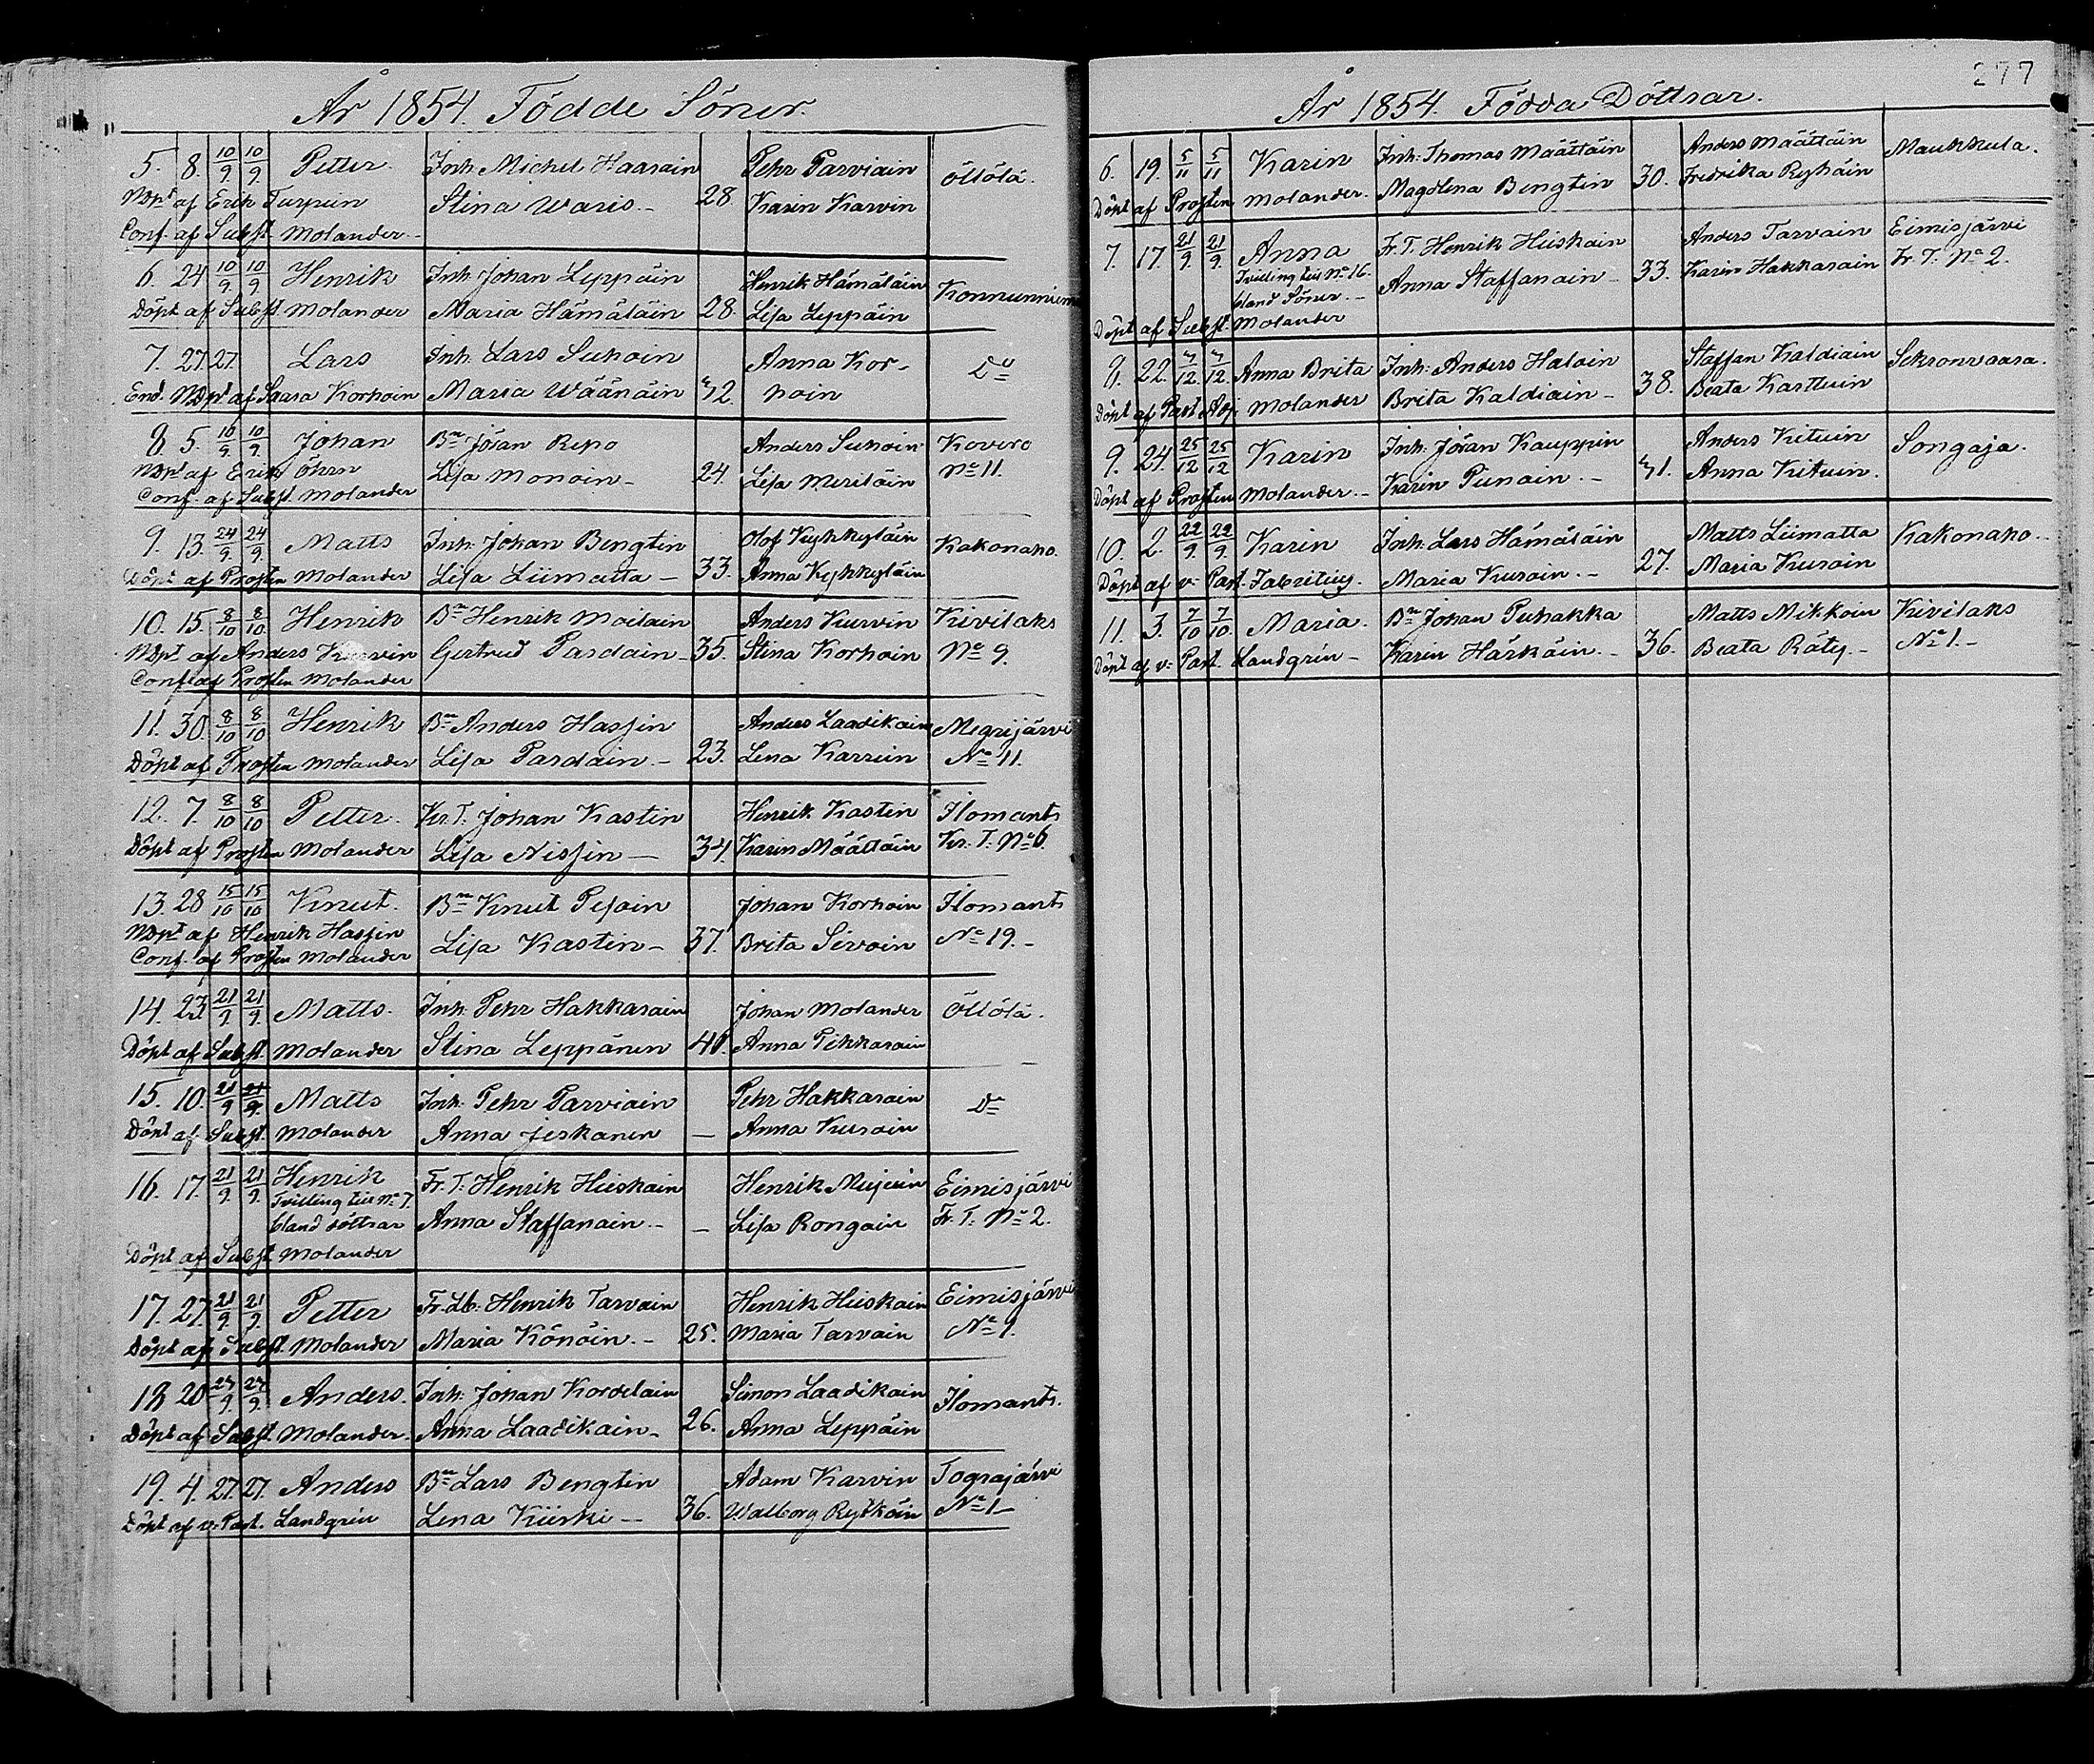 År 1854. Födde Söner.
5. 8. 10/9. 10/9. Petter. Inh: Michel Haarain Pehr Parviain Öllölä.
Ndpt af Erik Turpein Stina Waris.- 28 Karin Karvin
Conf. af Subst. Molander.-
6. 24 10/9. 10/9. Henrik Inh: Johan Leppäin Henrik Hämäläin
Döpt af Subst. Molander Maria Hämäläin 28. Lisa Leppäin
7. 27. 27. Lars Inh. Lars Suhoin Anna Kor- Do
End. Ndpt af Saara Korhoin Maria Wäänäin 42. hoin
8. 5. 10/9. 10/9. Johan Bn Jöran Repo Anders Suhoin Kovero
Ndpt af Erik Öhrn Lisa Monoin- 24. Lisa Meriläin No 11.
Conf. af Subst. Molander
9. 13. 24/9. 24/9. Matts Inh: Johan Bengtin Olof Kyhkyläin Kakonaho.
Döpt af Prosten Molander Lisa Liimatta - 33. Anna Kyhkyläin
10. 15. 8/10 8/10. Henrik Bn Henrik Moilain Anders Kurvin Kivilaks
Ndpt af Anders Kurvin Gertrud Pardain- 35. Stina Korhoin No 9.
Conf. af Prosten Molander
11. 30. 8/10 8/10 Henrik Bn Anders Hassin Anders Laadikain Megrijärvi
Döpt af Prosten Molander Lisa Pardain.- 23. Lena Karrein No 11.
12. 7. 8/10 8/10 Petter. Kr. T: Johan Kastin Henrik Kastin Ilomants
Döpt af Prosten Molander Lisa Nissin - 34. Karin Määttäin Kr. T: No 6.
13. 28 15/10 15/10 Knut. Bn Knut Pesoin Johan Korhoin Ilomants
Ndpt af Henrik Hassin Lisa Kastin- 37. Brita Sivoin No 19.-
Conf. af Prosten Molander
14. 23 21/9. 21/9. Matts. Inh: Pehr Hakkarain Johan Molander Öllölä.
Döpt af Subst. Molander Stina Leppänen Anna Pikkarain
15. 10. 21/9 21/9. Matts Inh: Pehr Parviain Pehr Hakkarain Do
Döpt af Subst. Molander Anna Jeskanen - Anna Kuroin
16. 17. 21/9. 21/9. Henrik Fr. T: Henrik Hieskain Henrik Mujuin Eimisjärvi
Tvilling till No 7.
bland döttrar Anna Staffanain.- - Lisa Rongain Fr. T: No 2.
Döpt af Subst. Molander
17. 27. 21/9. 21/9. Petter Fr. Lb: Henrik Tarvain Henrik Hieskain Eimisjärvi
Döpt af Subst. Molander Maria Könöin.- 25. Maria Tarvain No 1.
18 20 24/9. 24/9. Anders. Inh: Johan Kordelain Simon Laadikain Ilomants.
Döpt af Subst. Molander. Anna Laadikain- 26. Anna Leppäin
19. 4. 27. 27. Anders Bn Lars Bengtin Adam Karvin Tograjärvi
Döpt af v: Past. Landgrén Lena Kiiski - 36. Walborg Rytköin No 1-
277
År 1854. Födda Döttrar.
6. 19. 5/11 5/11 Karin Inh: Thomas Määttäin Anders Määttäin Maukkula.
Döpt af Prosten Molander. Magdlena Bengtin 30. Fredrika Ryhäin
7. 17. 21/9. 21/9. Anna Fr. T. Henrik Hieskain Anders Tarvain Eimisjärvi
Tvilling till No 16. Anna Staffanain- 33. Karin Hakkarain Fr. T. No 2.
bland Söner.-
Döpt af Subst. Molander
8. 22. 4/12. 4/12. Anna Brita Inh: Anders Haloin Staffan Kaldiain Sekronvaara.
Döpt af Past. Adj. Molander Brita Kaldiain- 38. Beata Karttuin
9. 24. 25/12 25/12 Karin Inh: Jöran Kauppin Anders Kituin Songaja.
Döpt af Prosten Molander.- Karin Piinoin.- 41. Anna Kituin
10. 2. 22/9. 22/9. Karin Inh: Lars Hämäläin Matts Liimatta Kakonaho.-
Döpt af v: Past. Fabritius. Maria Kuroin.- 27. Maria Kuroin
11. 3. 7/10 7/10. Maria. Bn Johan Puhakka Matts Mikkoin Kivilaks
Döpt af v: Past. Landgrén- Karin Härkäin.- 36. Beata Räty.- No 1.-